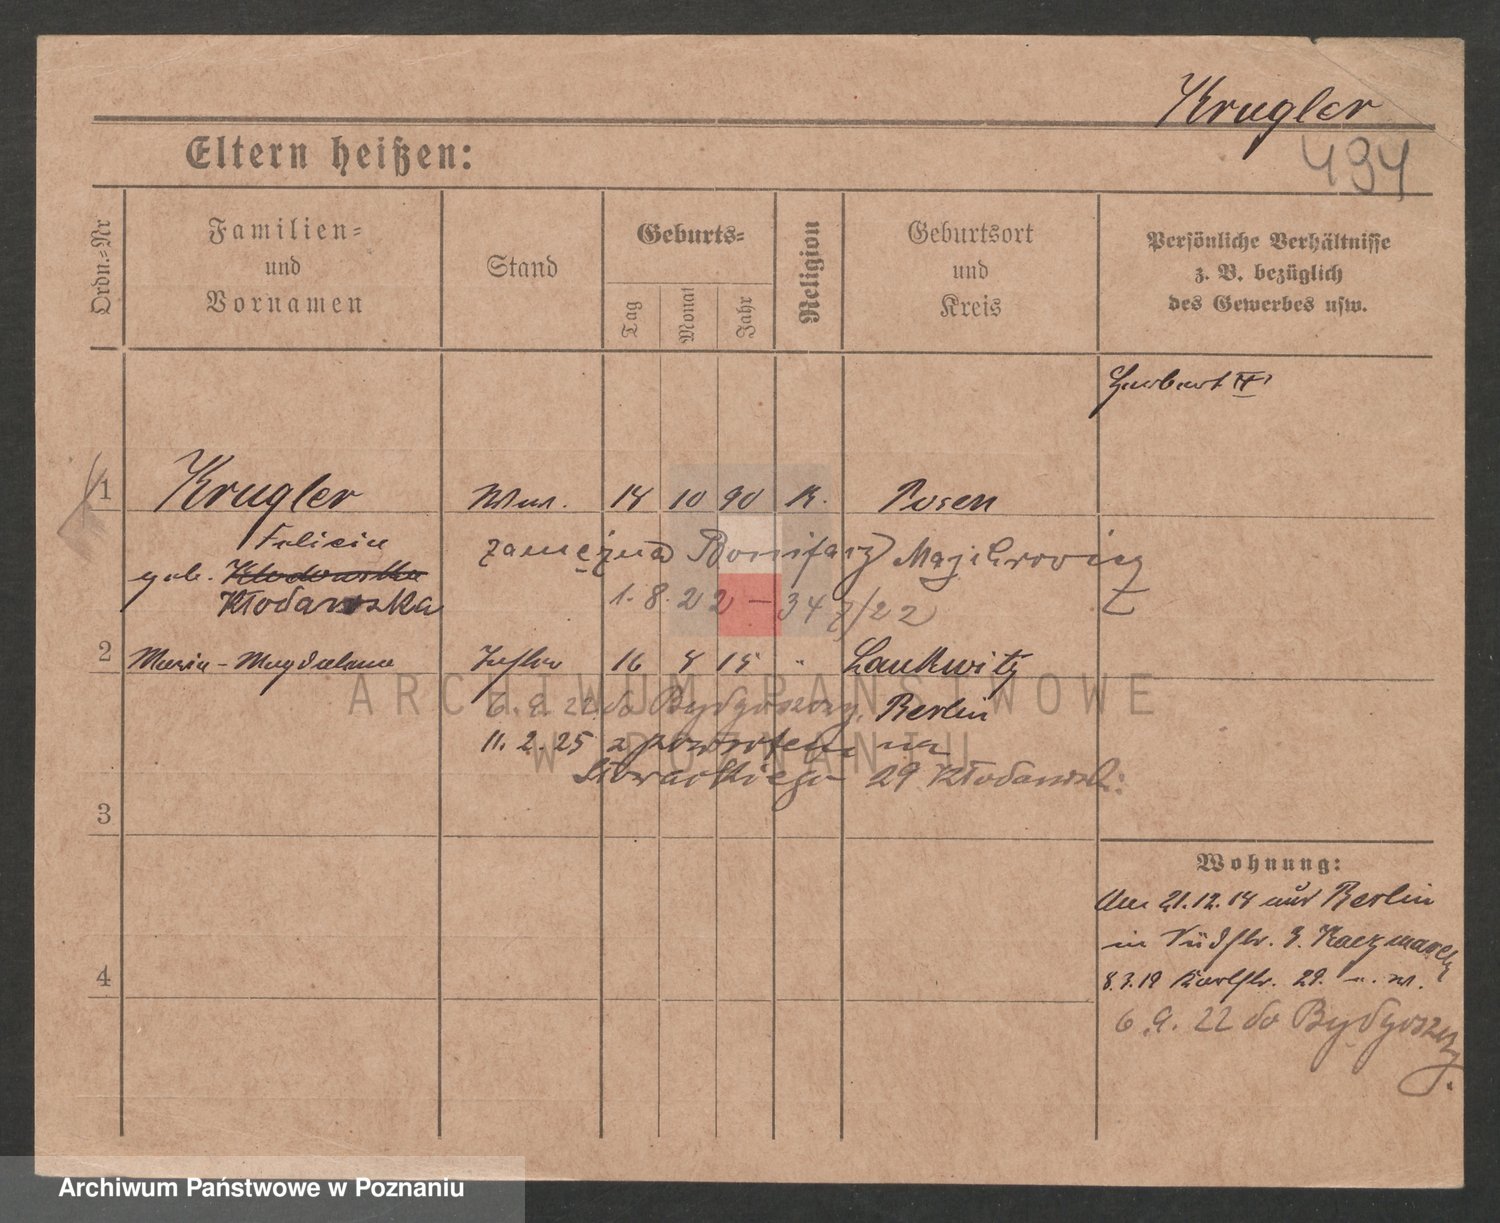 Krugler
494
Eltern heißen:
Ordn.=Nr
Familien=
und
Vornamen
Stand
Geburts=
Tag
Monat
Jahr
Religion
Geburtsort
und
Kreis
Persönliche Verhältnisse
z. B. bezüglich
des Gewerbes usw.
1
Krugler
Wwe.
18
10
90
K.
Posen
Felicia
geb. Klodowska
Kłodawska
zamężna Bonifacy Majchrowicz
1. 8. 22 — 34 Z/22
2
Maria-Magdalena
Tochter
16
8
15
"
Lankwitz
6. 9. 22 do Bydgoszczy.
Berlin
11. 2. 25 z powrotem na
Słowackiego 29 Kłodawsk:
3
4
Wohnung:
Am 21.12.18 aus Berlin
in 3. Kaczmarek
8.3.19 Karlstr. 29.
6.9.22 do Bydgoszczy.
ARCHIWUM PAŃSTWOWE
W POZNANIU
Archiwum Państwowe w Poznaniu